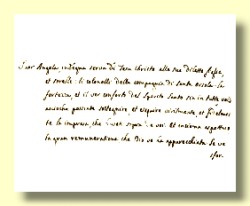 Suor Angela, indegna serva di Jesu christo alla sua dilette figlie,
et sorelle: le colonelle della compagnia di Santa Orsola. La
fortezza, et il ver conforto del Spirito Santo sia in tutte voi
acciochè possiate sostegnire, et exequire virilmente, et fidelmen
te la impresa, che havete sopra de voi. Et insieme aspettar
la gran remuneratione che Dio ve ha apparecchiata se ve